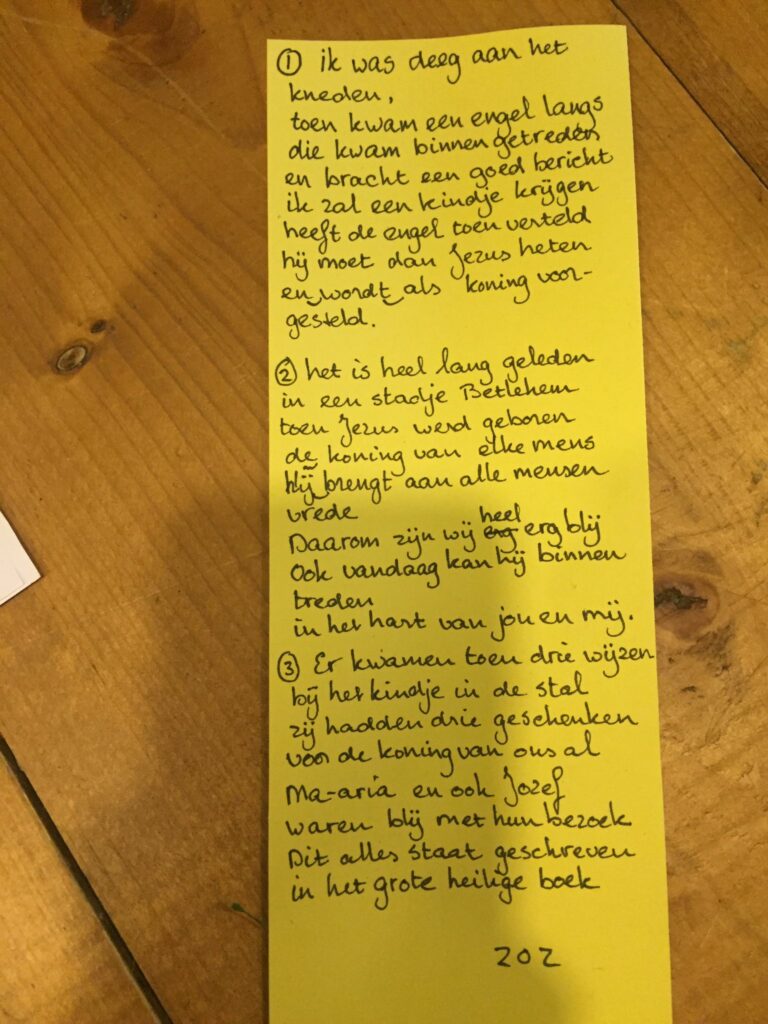 ① ik was deeg aan het
kneden,
toen kwam een engel langs
die kwam binnen getreden
en bracht een goed bericht
ik zal een kindje krijgen
heeft de engel toen verteld
hij moet dan Jezus heten
en wordt als koning voor-
gesteld.
② het is heel lang geleden
in een stadje Betlehem
toen Jezus werd geboren
de koning van elke mens
hij brengt aan alle mensen
vrede
Daarom zijn wij erg heel erg blij
Ook vandaag kan hij binnen
treden
in het hart van jou en mij.
③ Er kwamen toen drie wijzen
bij het kindje in de stal
zij hadden drie geschenken
voor de koning van ons al
Ma-aria en ook Jozef
waren blij met hun bezoek
Dit alles staat geschreven
in het grote heilige boek
202